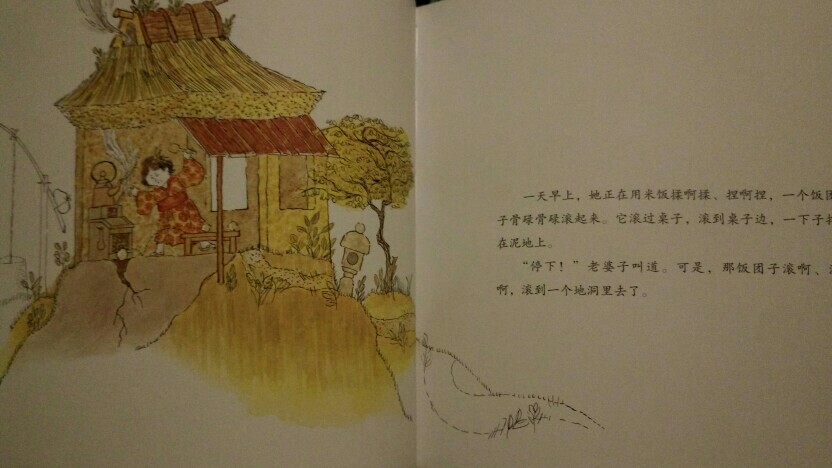 一天早上，她正在用米饭揉啊揉、捏啊捏，一个饭团
子骨碌骨碌滚起来。它滚过桌子，滚到桌子边，一下子
在泥地上。
“停下！”老婆子叫道。可是，那饭团子滚啊、
啊，滚到一个地洞里去了。